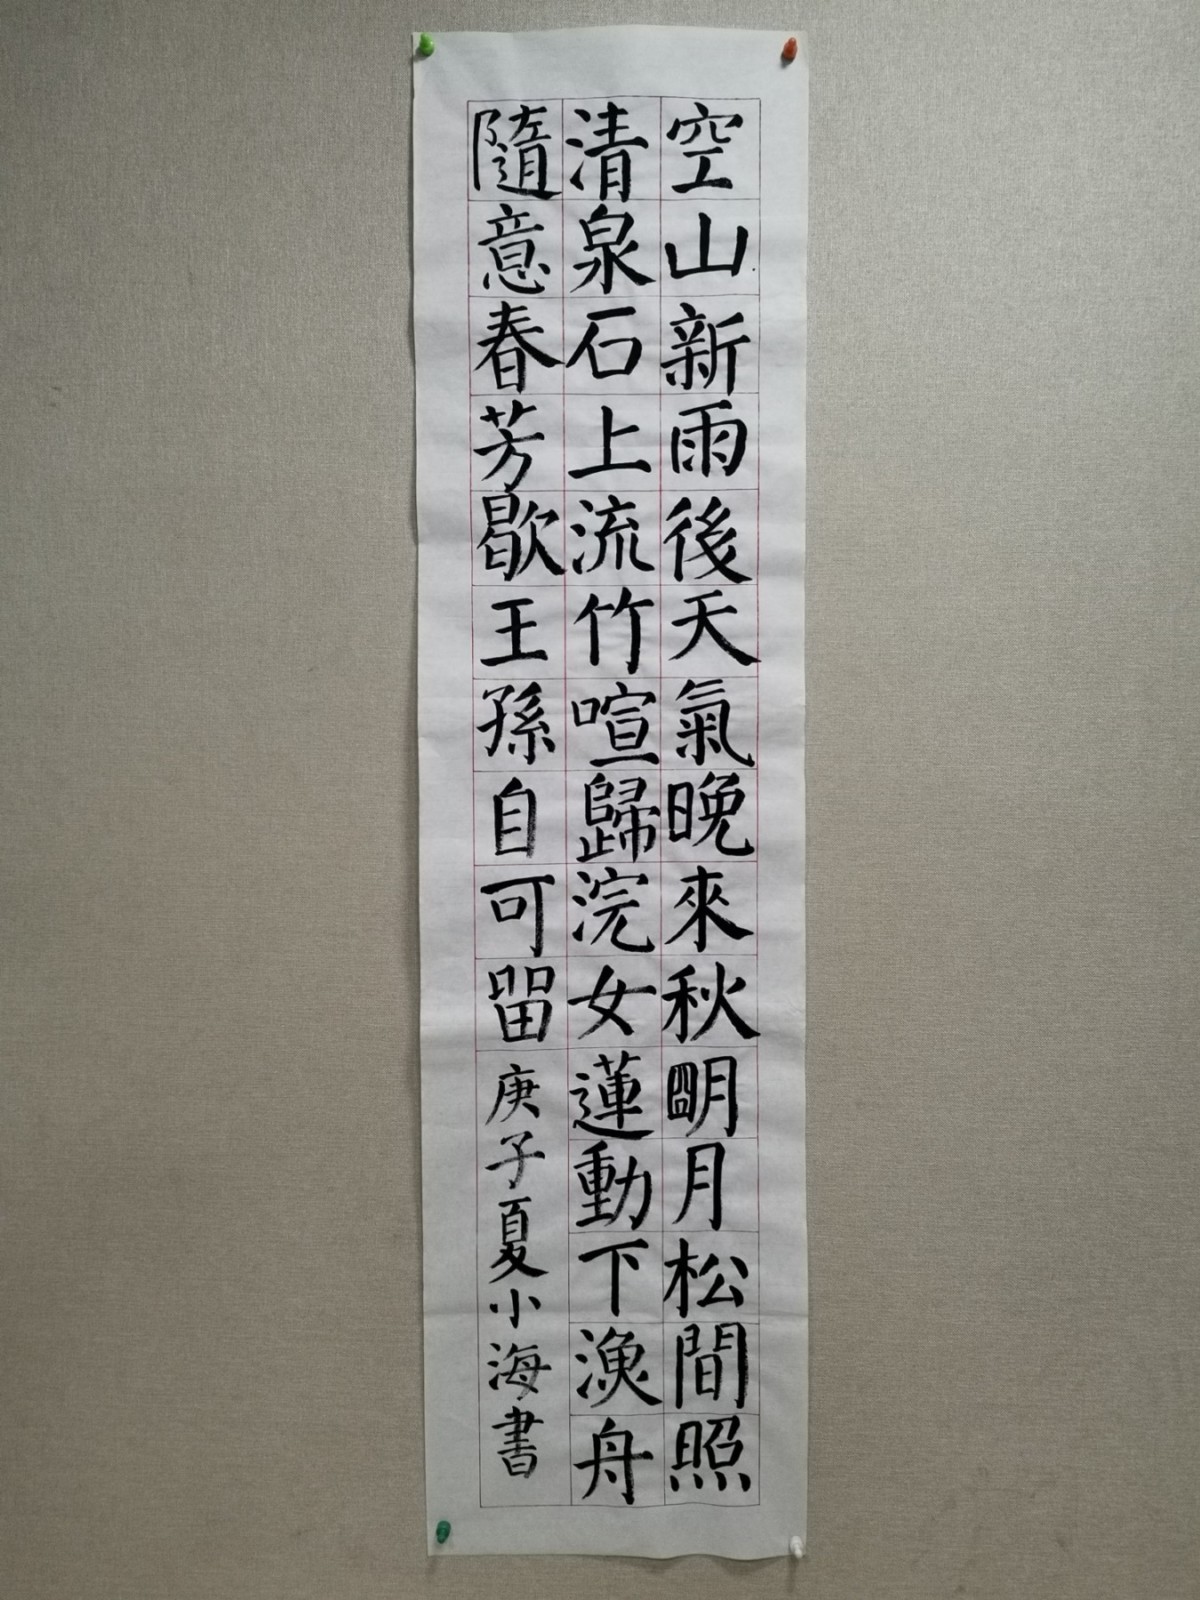 空山新雨後天氣晚來秋明月松間照
清泉石上流竹喧歸浣女蓮動下漁舟
隨意春芳歇王孫自可留庚子夏小海書